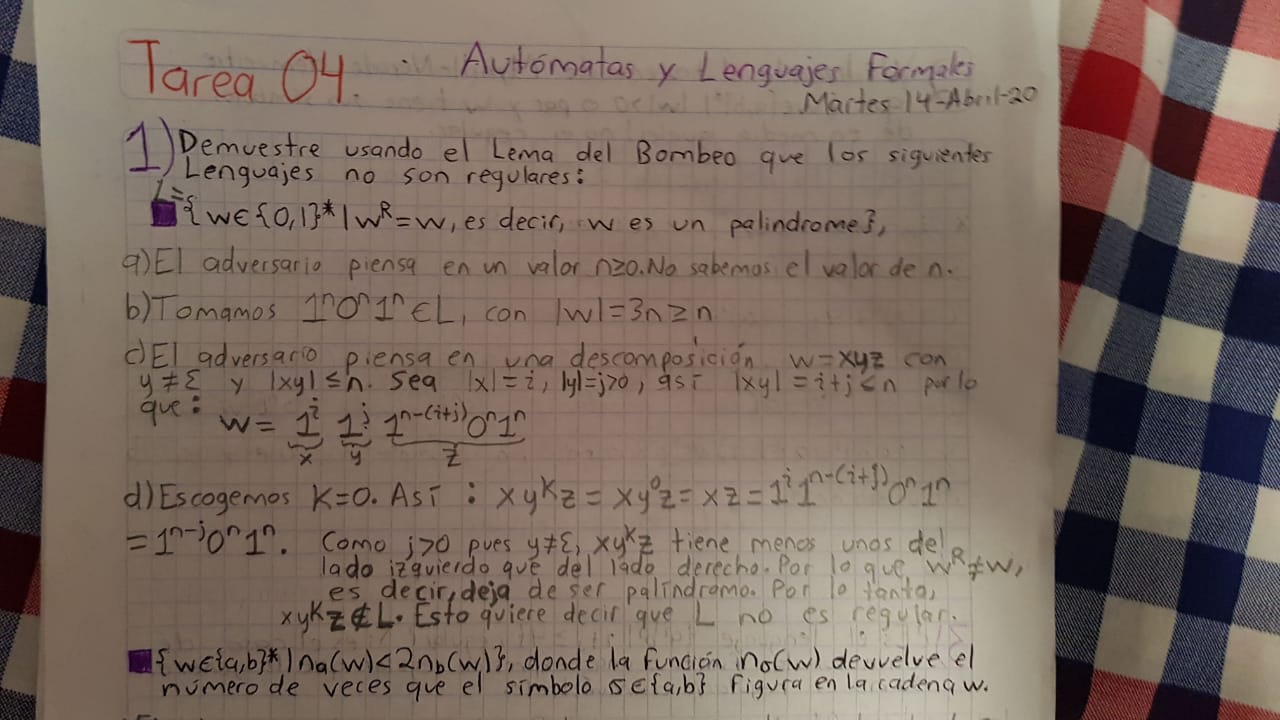 Tarea 04. Autómatas y Lenguajes Formales
Martes 14-Abril-20
1) Demuestre usando el Lema del Bombeo que los siguientes
Lenguajes no son regulares:
L=
{w∈{0,1}*|wᴿ=w, es decir, w es un palindrome},
a) El adversario piensa en un valor n≥0. No sabemos el valor de n.
b) Tomamos 1ⁿ0ⁿ1ⁿ∈L, con |w|=3n≥n
c) El adversario piensa en una descomposición w=xyz con
y≠ε y |xy|≤n. Sea |x|=i, |y|=j>0, así |xy|=i+j≤n por lo
que:
w = 1ⁱ 1ʲ 1ⁿ⁻⁽ⁱ⁺ʲ⁾0ⁿ1ⁿ
x y z
d) Escogemos K=0. Así: xyᴷz = xy⁰z = xz = 1ⁱ1ⁿ⁻⁽ⁱ⁺ʲ⁾0ⁿ1ⁿ
= 1ⁿ⁻ʲ0ⁿ1ⁿ. Como j>0 pues y≠ε, xyᴷz tiene menos unos del
lado izquierdo que del lado derecho. Por lo que wᴿ≠w,
es decir, deja de ser palíndromo. Por lo tanto,
xyᴷz∉L. Esto quiere decir que L no es regular.
{w∈{a,b}*|na(w)<2nb(w)}, donde la función nσ(w) devuelve el
número de veces que el símbolo σ∈{a,b} figura en la cadena w.